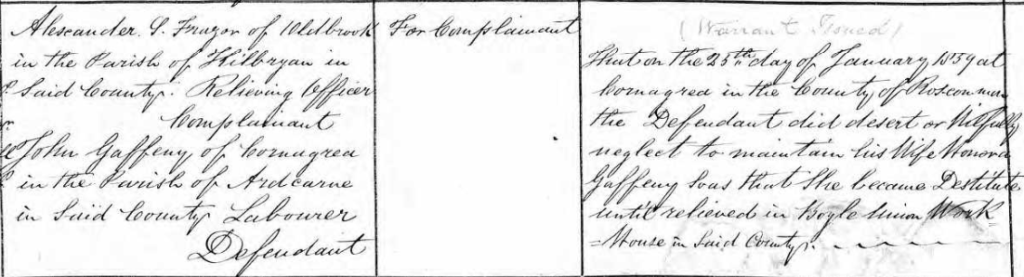 Alexander S. Frazor of Oldbrook
in the Parish of Kilbryan in
Said County. Relieving Officer
Complainant
John Gaffeny of Cornagrea
in the Parish of Ardcarne
in Said County Labourer
Defendant
For Complainant
(Warrant Issued)
That on the 25th day of January 1859 at
Cornagrea in the County of Roscommon
the Defendant did desert or Wilfully
neglect to maintain his Wife Honora
Gaffeny So as that She became Destitute
until relieved in Boyle Union Work
=House in Said County.